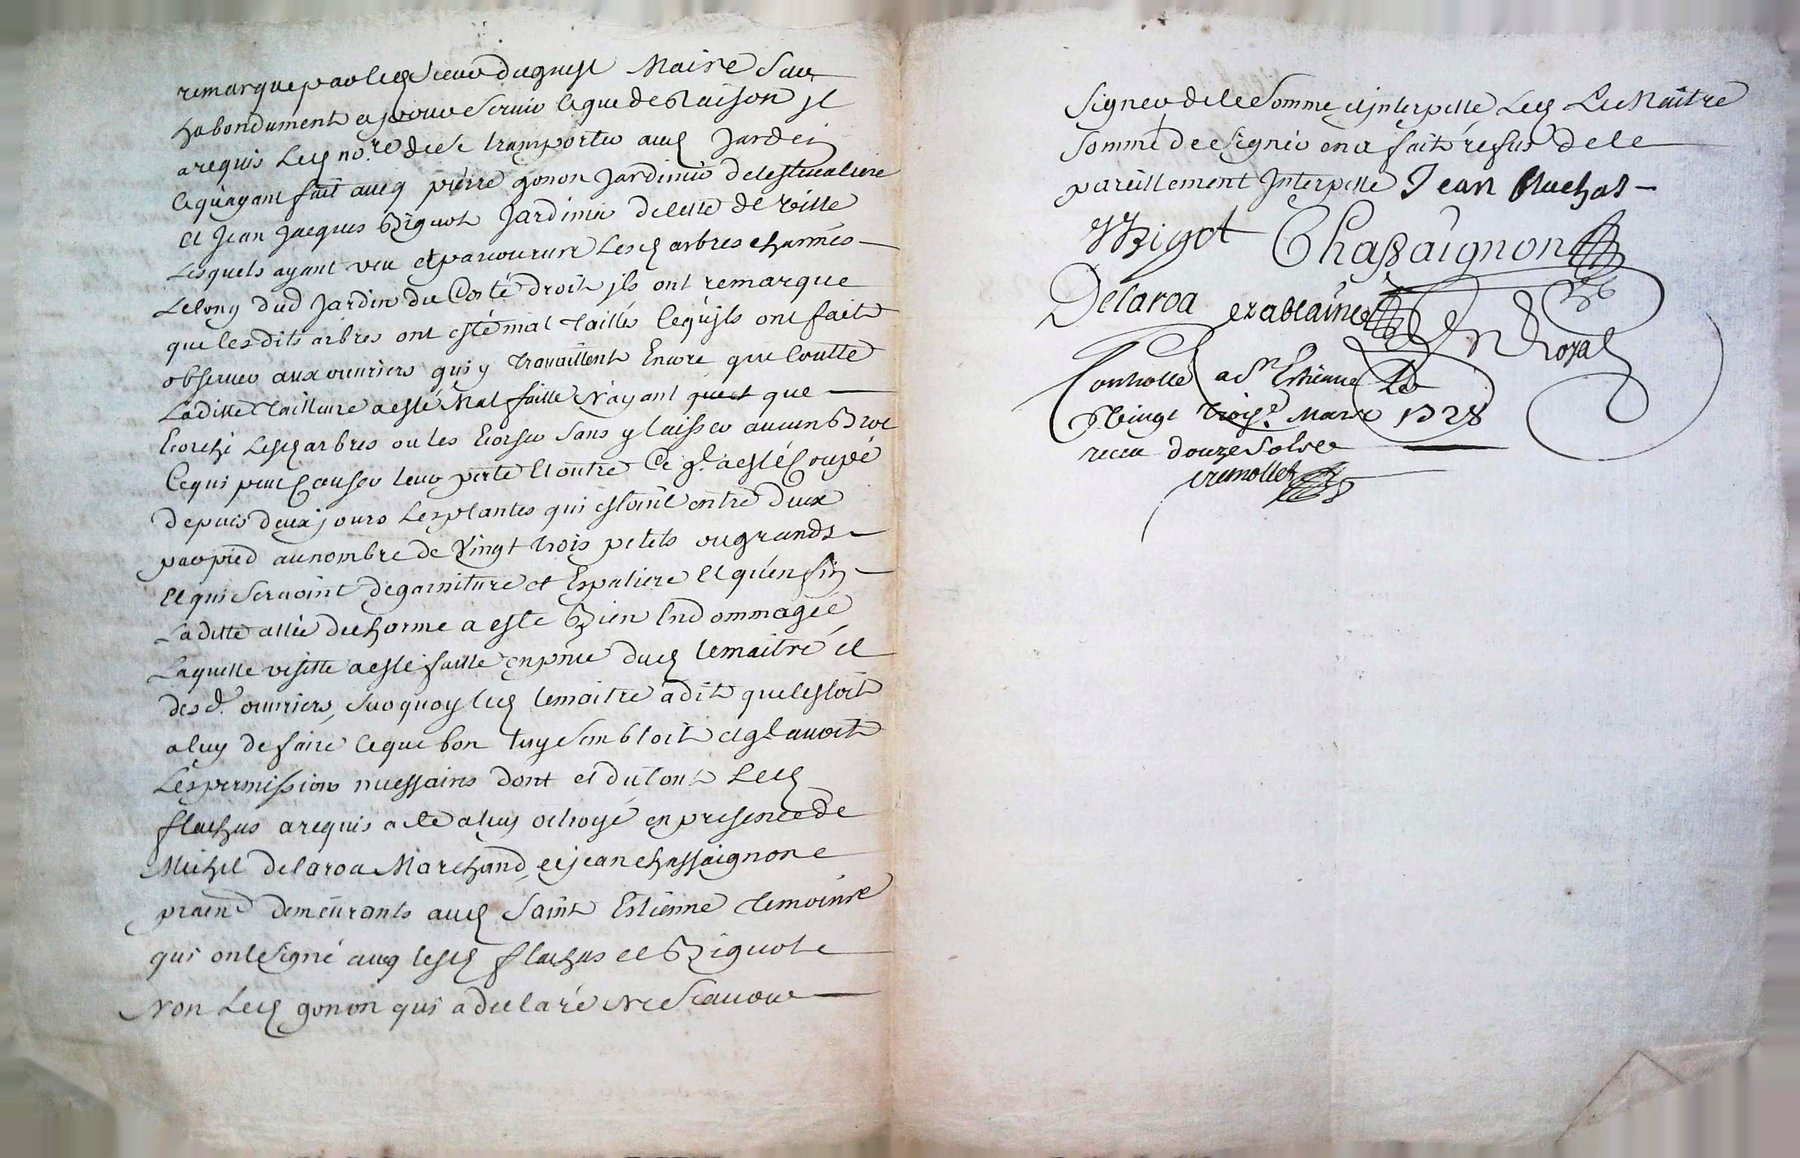 remarque par led. Sieur duguest Maire Sur
habondament et pour Servir ceque de Raison Jl
a requis Led. no.re de Se transporter aud. Jardin
cequayant fait avecq pierre gonon Jardinier delestivaliere
et Jean Jacques Briguot Jardinier de cette de Ville
Lesquels ayant veu et parcourus Lesd. arbres charmes
Lelong dud Jardin du Costé droit jls ont remarque
que lesdits arbres ont esté mal taillés cequils ont fait
observer aux ouvriers qui y travaillent Encore que toutte
Laditte taillure a esté Mal faitte N'ayant que
Ecorché Lesd. arbres ou les Ecorser Sans y laisser aucun Broc
Cequi peut Causer leur perte Et outre Ce ql. a esté Coupé
depuis deux jours Les plantes qui estoint entre deux
par pied au nombre de Vingt trois petits ou grands
Et qui Servoint degarniture et Espaliere Et quenfin
Laditte allée de charme a esté Bien Endommagée
Laquelle visitte a esté faitte en pnce dud. lemaitre et
des d. ouvriers, Sur quoy led. lemaitre a dit quelestoit
a luy de faire ceque bon luy Sembloit et ql. avoit
Les permissions necessaires dont et du tout Led.
flachas a requis acte a luy octroyé en presence de
Michel delaroa Marchand et jean chassaignon
praen demeurants aud. Saint Estienne temoins
qui ont Signé avecq lesd. flachas et Briguot
Non Led. gonon qui a declaré Ne Scavoir
Signer de ce Sommé et jnterpellé Led. Le Maitre
Sommé de Signer en a fait refus de ce
pareillement Interpellé Jean flachas
Brigot Chassaignon
Delaroa
Royal
Controllé a St. Estienne Le
Vingt trois. Mars 1728
receu douze Sols